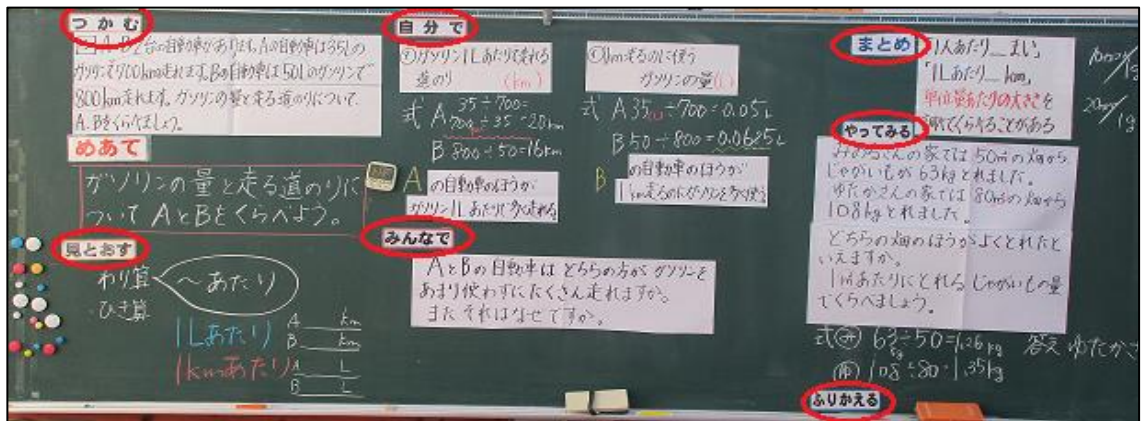 つかむ
A,B2台の自動車があります。Aの自動車は35Lの
ガソリンで700km走れます。Bの自動車は50Lのガソリンで
800km走れます。ガソリンの量と走る道のりについて
A,Bをくらべましょう。
めあて
ガソリンの量と走る道のりに
ついてAとBをくらべよう。
見とおす
わり算
ひき算
〜あたり
1Lあたり
A km
B km
1kmあたり
A L
B L
自分で
ガソリン1Lあたりで走れる
道のり (km)
式 A 35÷700=
700÷35=20km
B 800÷50=16km
A の自動車のほうが
ガソリン1Lあたりで多く走れる
1km走るのに使う
ガソリンの量(L)
式 A 35÷700=0.05L
B 50÷800=0.0625L
B の自動車のほうが
1km走るのにガソリンを多く使う
みんなで
AとBの自動車はどちらの方がガソリンを
あまり使わずにたくさん走れますか。
またそれはなぜですか。
まとめ
「1人あたり__まい」
「1Lあたり__km」
単位量あたりの大きさを
くらべることがある
やってみる
みのるさんの家では50㎡の畑から
じゃがいもが63kgとれました。
ゆたかさんの家では80㎡の畑から
108kgとれました。
どちらの畑のほうがよくとれたと
いえますか。
1㎡あたりにとれるじゃがいもの量
でくらべましょう。
式 63÷50=1.26kg
108÷80=1.35kg
答え ゆたかさ
ふりかえる